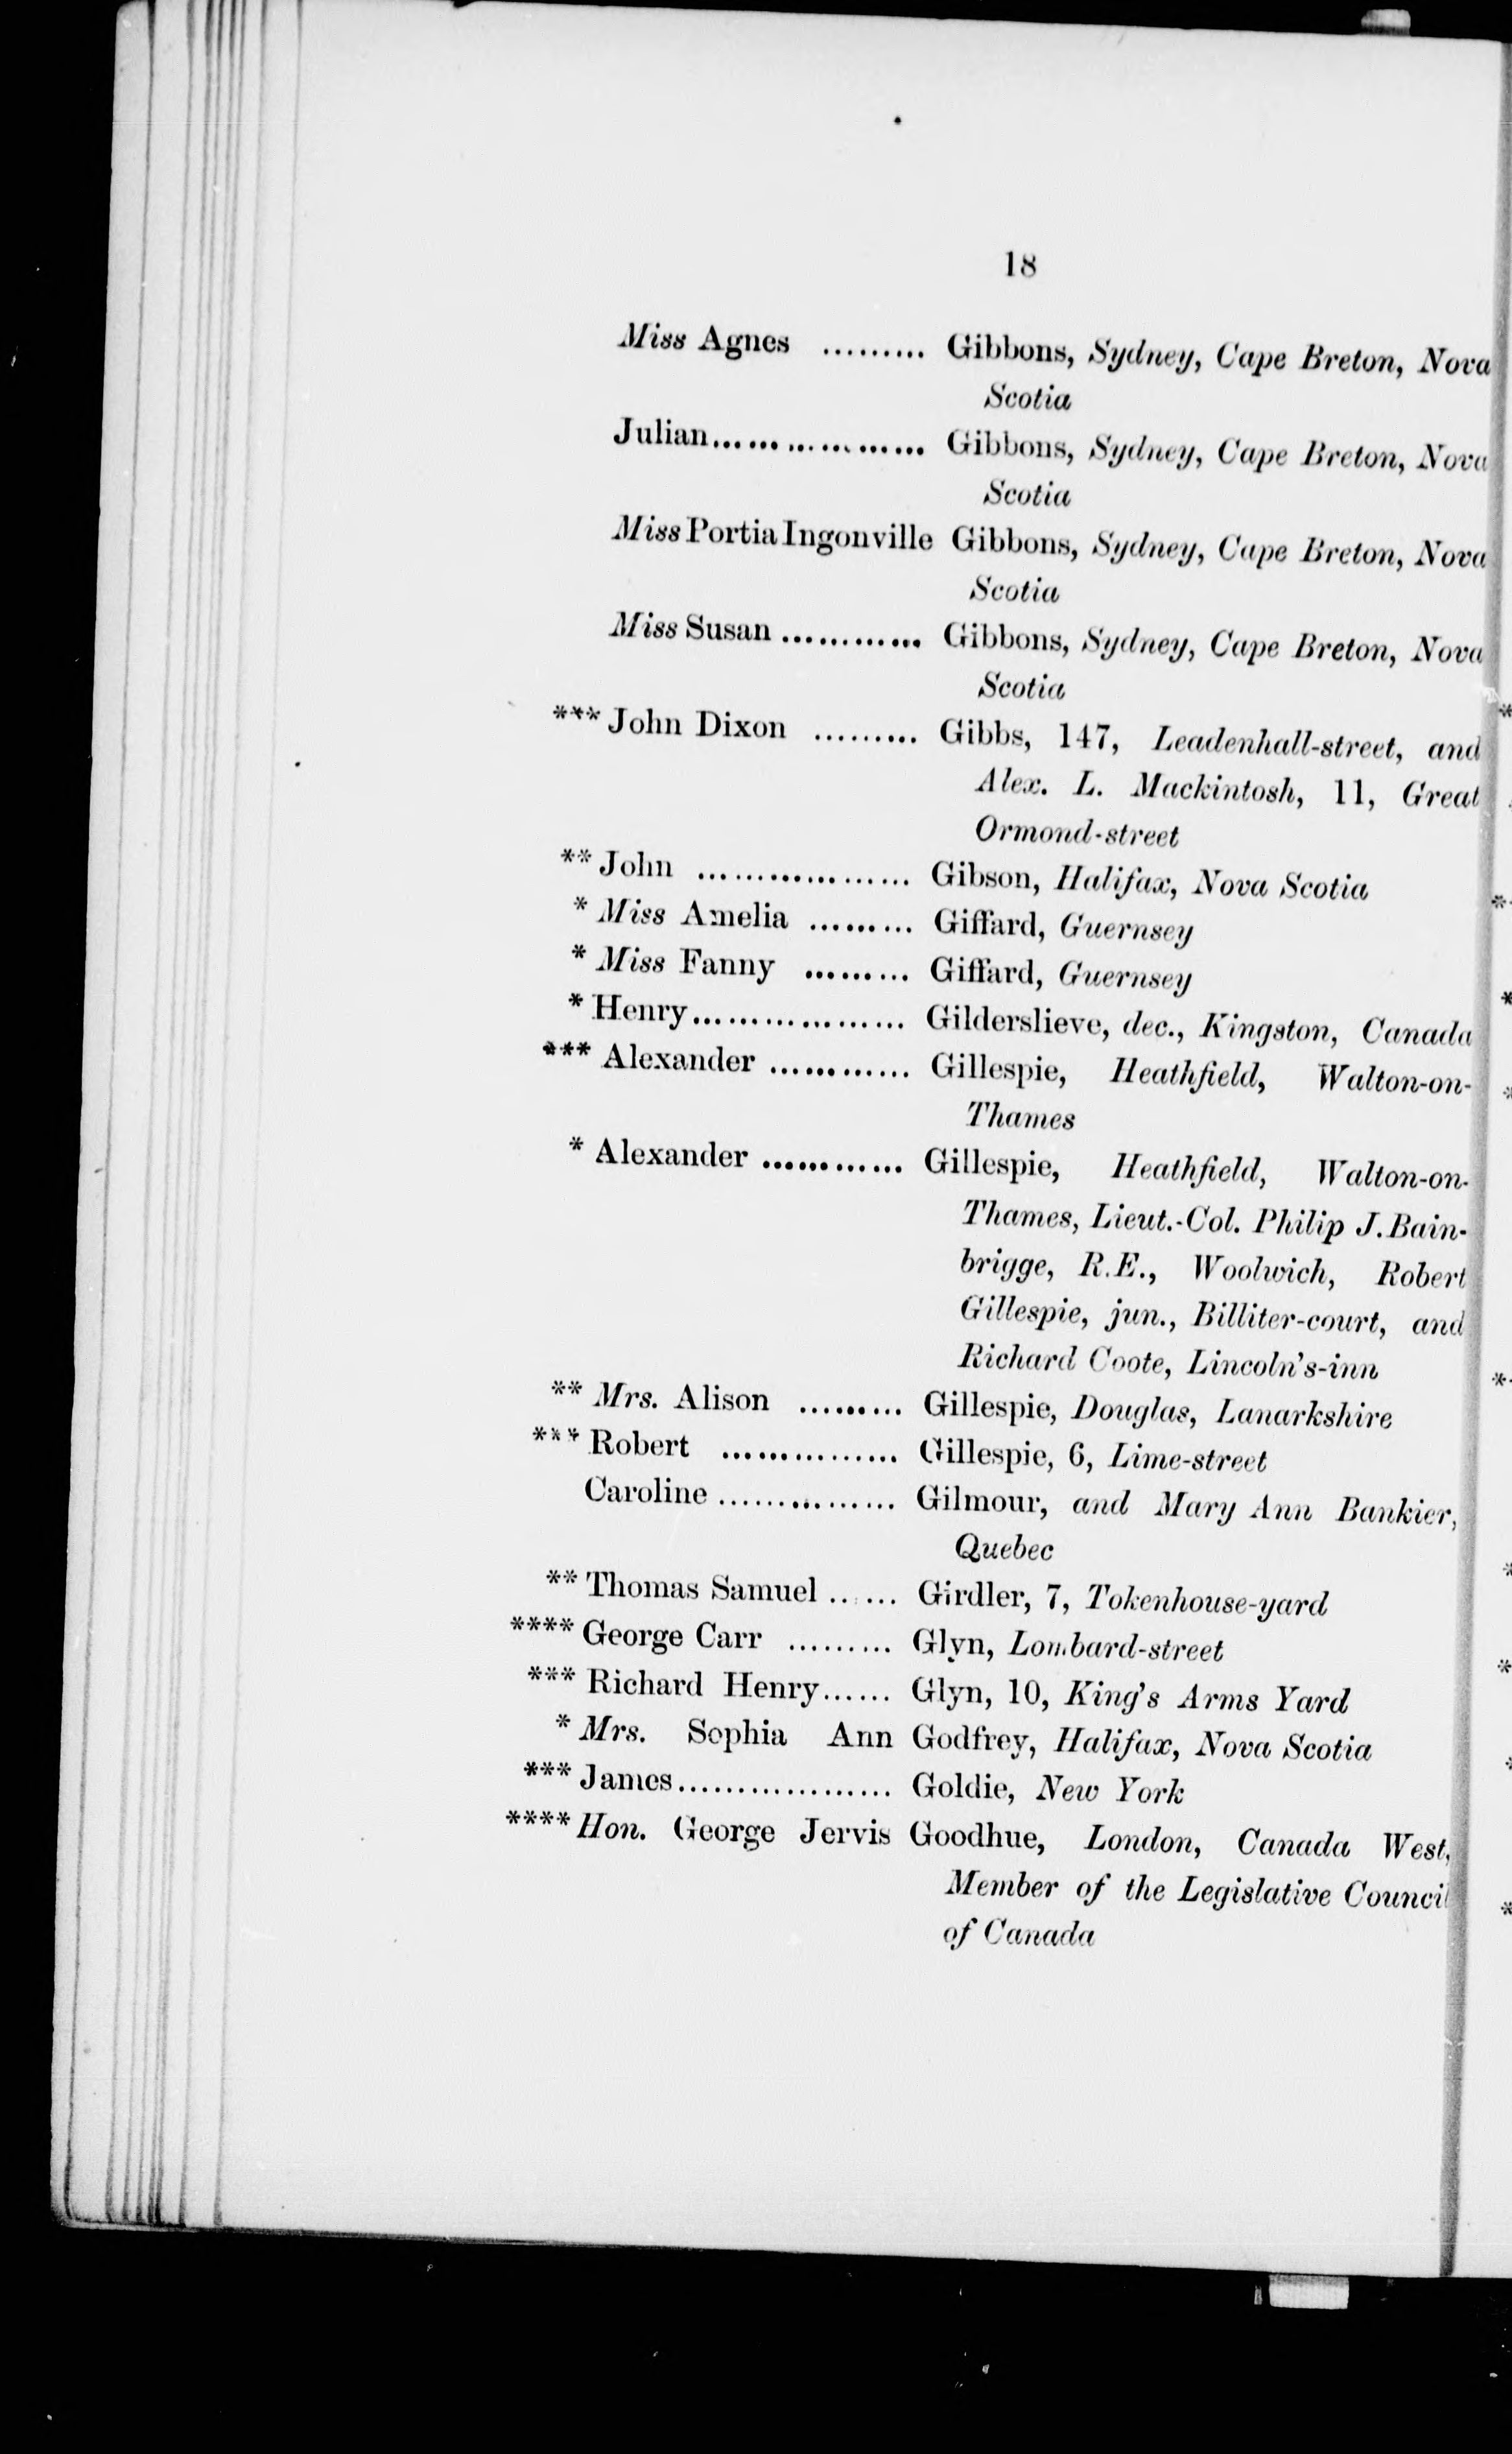 18
Miss Agnes ......... Gibbons, Sydney, Cape Breton, Nova
Scotia
Julian.................. Gibbons, Sydney, Cape Breton, Nova
Scotia
Miss Portia Ingonville Gibbons, Sydney, Cape Breton, Nova
Scotia
Miss Susan ............ Gibbons, Sydney, Cape Breton, Nova
Scotia
*** John Dixon ......... Gibbs, 147, Leadenhall-street, and
Alex. L. Mackintosh, 11, Great
Ormond-street
** John .................. Gibson, Halifax, Nova Scotia
* Miss Amelia ......... Giffard, Guernsey
* Miss Fanny ......... Giffard, Guernsey
* Henry.................. Gilderslieve, dec., Kingston, Canada
*** Alexander ............ Gillespie, Heathfield, Walton-on-
Thames
* Alexander ............ Gillespie, Heathfield, Walton-on-
Thames, Lieut.-Col. Philip J. Bain-
brigge, R.E., Woolwich, Robert
Gillespie, jun., Billiter-court, and
Richard Coote, Lincoln's-inn
** Mrs. Alison ......... Gillespie, Douglas, Lanarkshire
*** Robert ............... Gillespie, 6, Lime-street
Caroline ............... Gilmour, and Mary Ann Bankier,
Quebec
** Thomas Samuel ...... Girdler, 7, Tokenhouse-yard
**** George Carr ......... Glyn, Lombard-street
*** Richard Henry...... Glyn, 10, King's Arms Yard
* Mrs. Sophia Ann Godfrey, Halifax, Nova Scotia
*** James.................. Goldie, New York
**** Hon. George Jervis Goodhue, London, Canada West,
Member of the Legislative Council
of Canada